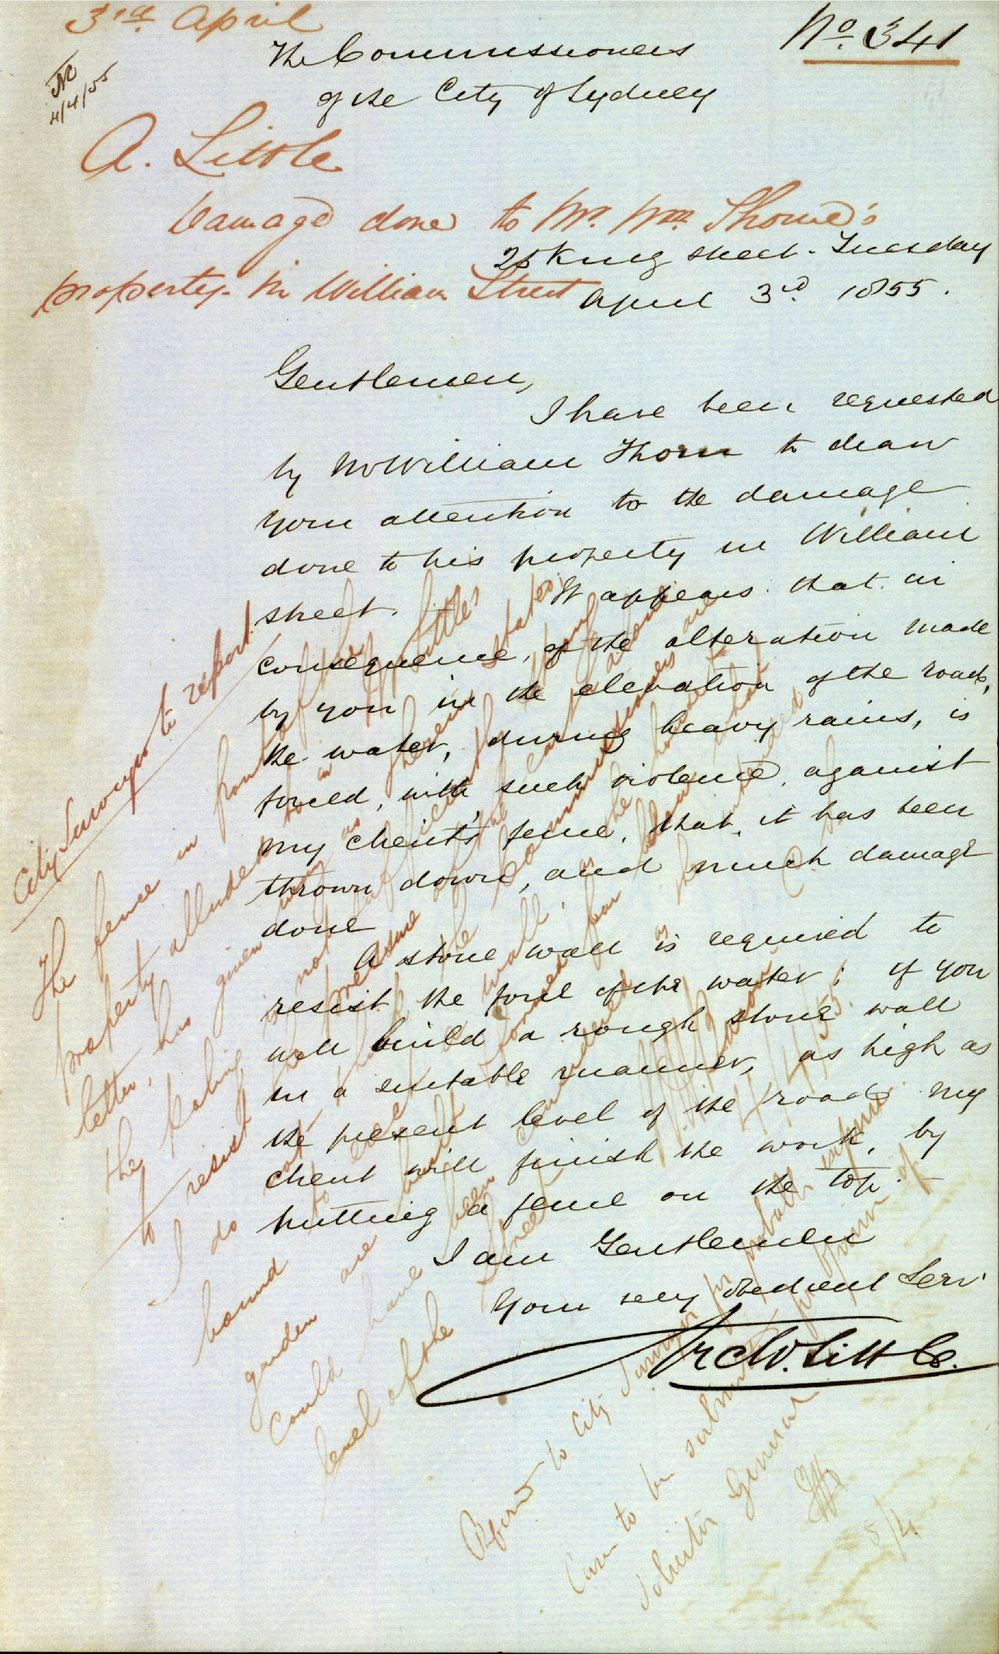 3rd April
No. 341
The Commissioners
of the City of Sydney
4/4/55
A. Little
Damage done to Mr. Wm. Thorne's
property in William Street
25 King Street - Tuesday
April 3d. 1855.
Gentlemen,
I have been requested
by Mr William Thorn to draw
your attention to the damage
done to his property in William
street. It appears that in
consequence, of the alteration made
by you in the elevation of the roads,
the water, during heavy rains, is
forced, with such violence, against
my client's fence, that, it has been
thrown down, and much damage
done
A stone wall is required to
resist the force of the water; if you
will build a rough stone wall
in a suitable manner, as high as
the present level of the road my
client will finish the work, by
putting a fence on the top.
I am Gentlemen
Your very obedient Serv.
Arch. Little.
City Surveyor to report
The fence in front of the
property alluded to in Mr Little's
letter, has given way as therein stated,
the paling not sufficient
to resist
I do not presume the Commissioners are
bound to
garden
could have been
level of the Street
Refer to City Surveyor for
Case to be submitted for opinion of
Solicitor General
5/4